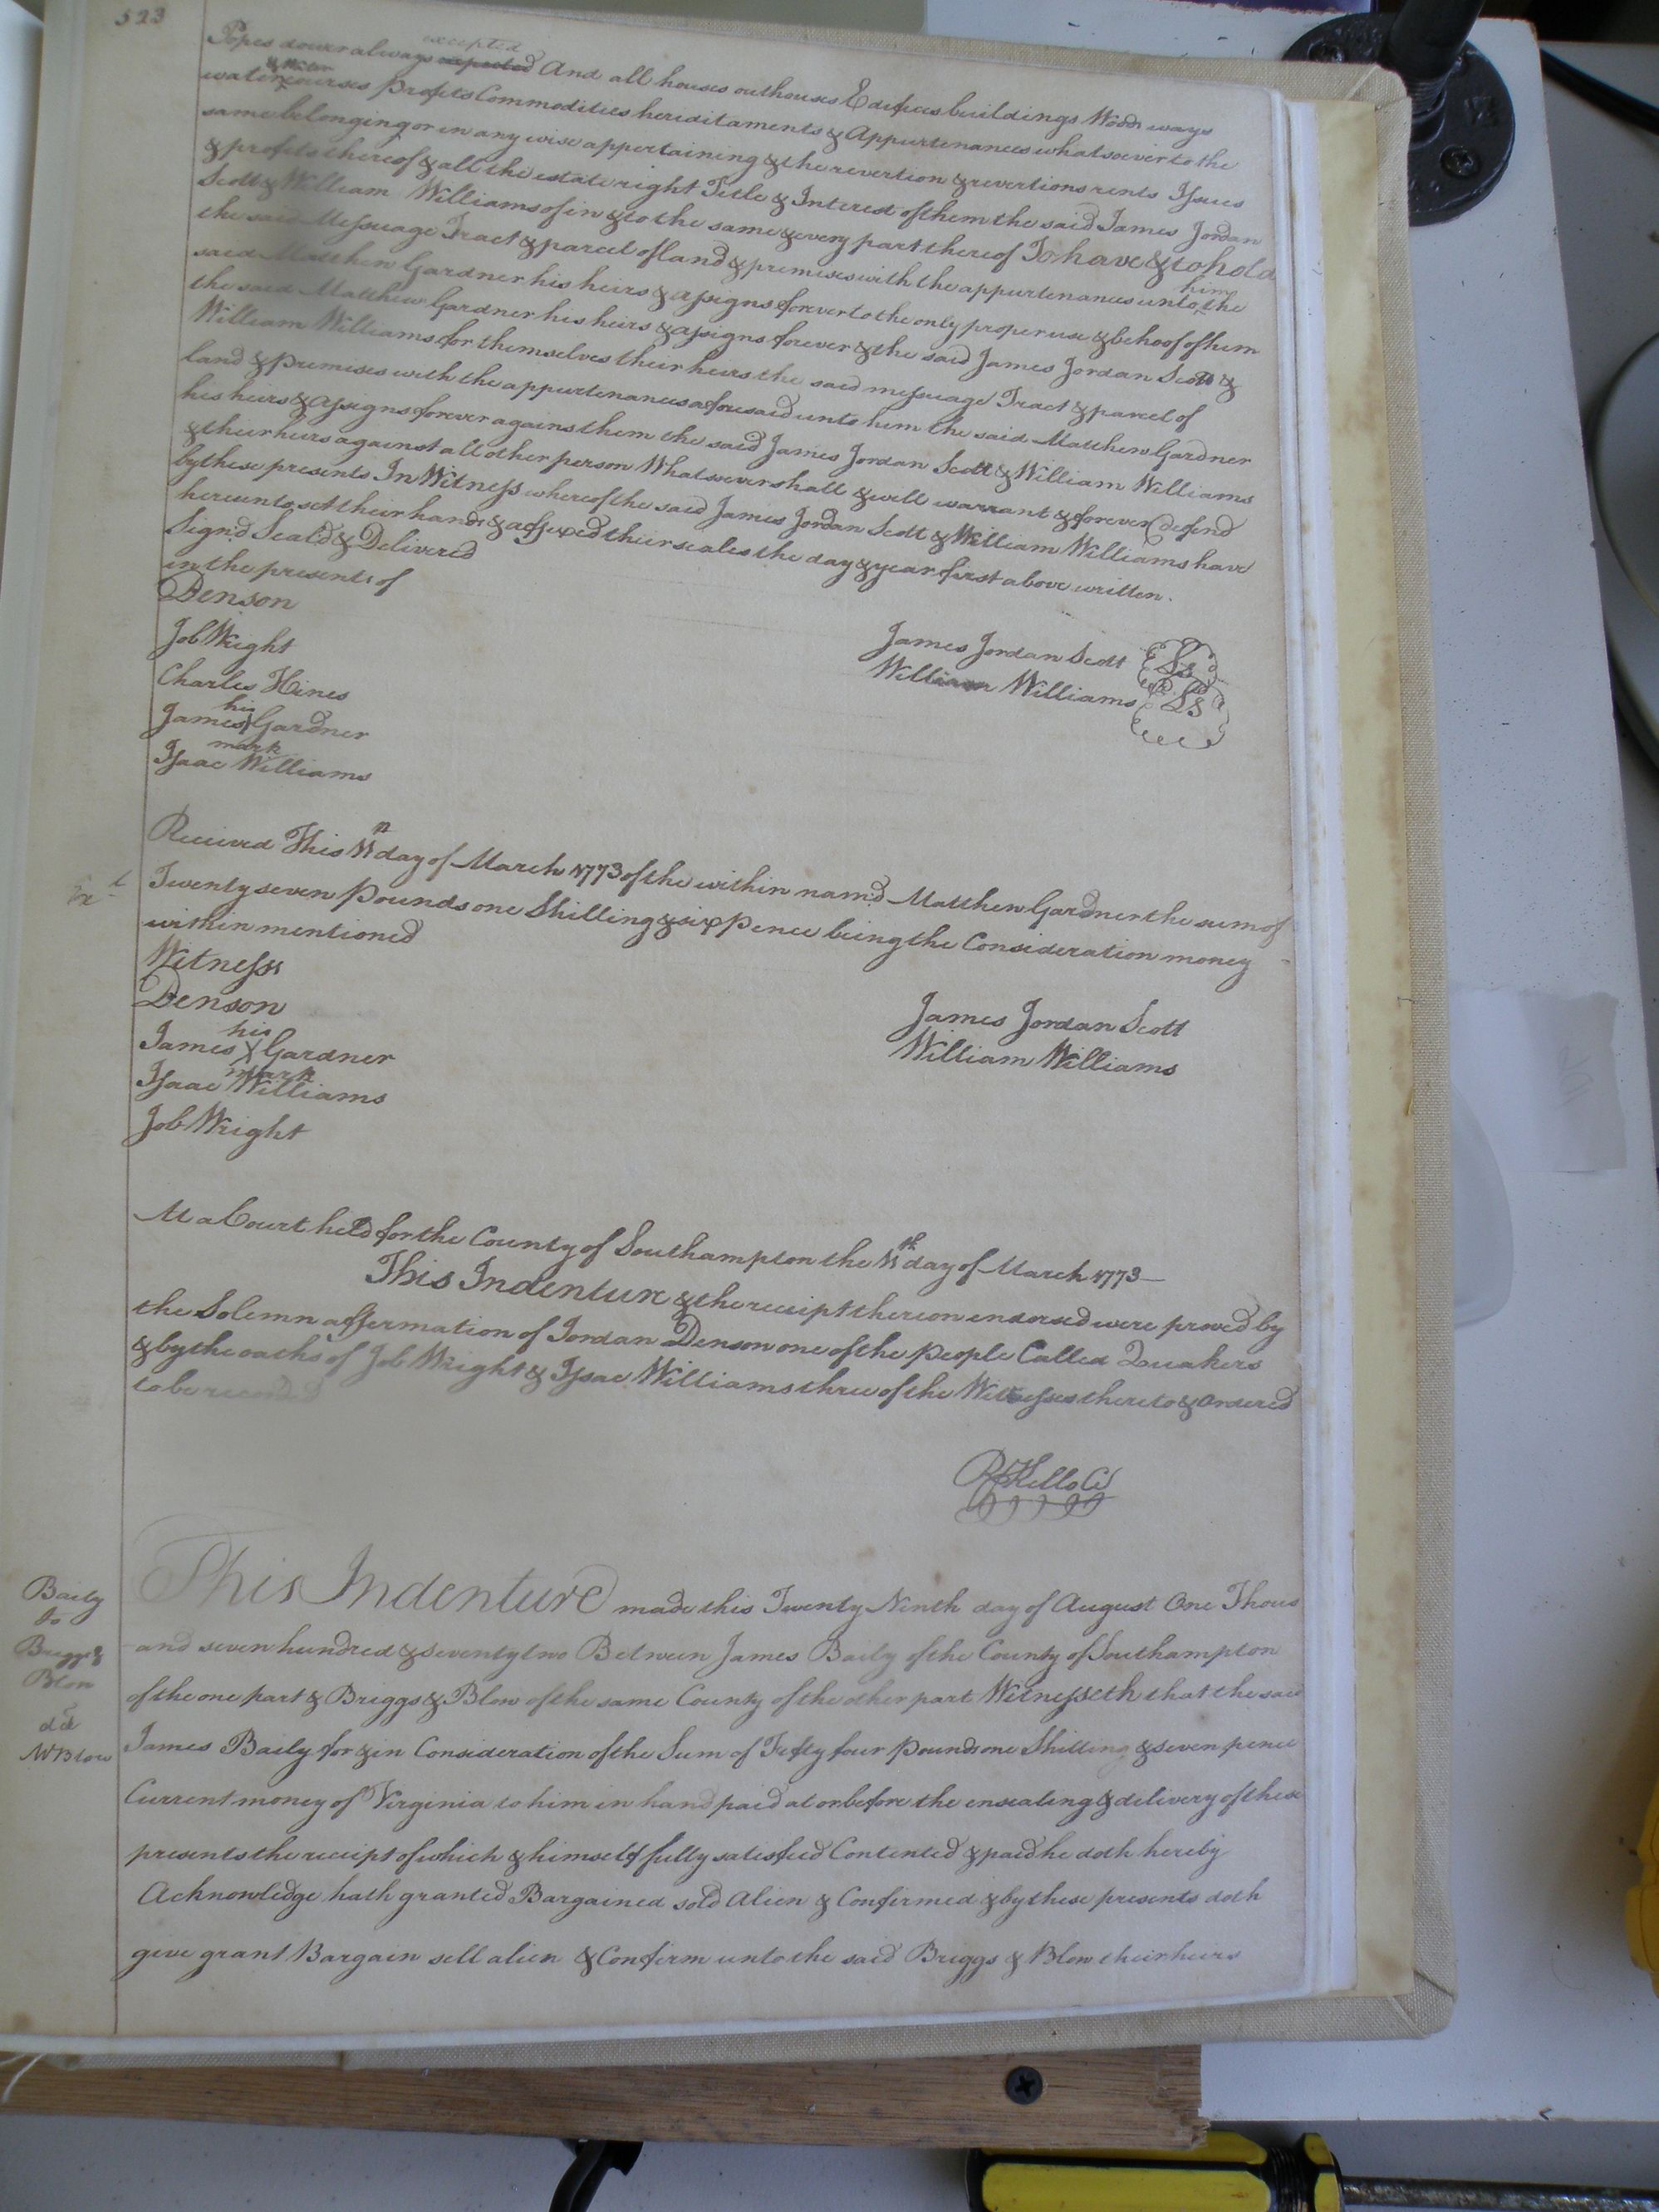 523
Popes dower always excepted And all houses outhouses Edifices buildings Woods ways
water & Water courses Profits Commodities hereditaments & Appurtenances whatsoever to the
same belonging or in any wise appertaining & the revertion & revertions rents Issues
& profits thereof & all the estate right Title & Interest of them the said James Jordan
Scott & William Williams of in & to the same & every part thereof To have & to hold
the said Messuage Tract & parcel of land & premises with the appurtenances unto him the
said Matthew Gardner his heirs & assigns forever to the only proper use & behoof of him
the said Matthew Gardner his heirs & assigns forever & the said James Jordan Scott &
William Williams for themselves their heirs the said messuage Tract & parcel of
land & premises with the appurtenances aforesaid unto him the said Matthew Gardner
his heirs & assigns forever against them the said James Jordan Scott & William Williams
& their heirs against all other person Whatsoever shall & will warrant & forever defend
by these presents In Witness whereof the said James Jordan Scott & William Williams have
hereunto set their hands & affixed their seales the day & year first above written.
Sign'd Seal'd & Delivered
in the presents of
Denson
Job Wright
Charles Hines
James his mark Gardner
Isaac Williams
James Jordan Scott Ls
William Williams Ls
Received This 11th day of March 1773 of the within nam'd Matthew Gardner the sum of
Twenty seven Pounds one Shilling & six Pence being the Consideration money
within mentioned
Witness
Denson
James his X mark Gardner
Isaac Williams
Job Wright
James Jordan Scott
William Williams
At a Court held for the County of Southampton the 11th day of March 1773
This Indenture & the receipt thereon endorsed were proved by
the Solemn affermation of Jordan Denson one of the People Called Quakers
& by the oaths of Job Wright & Isaac Williams three of the Witnesses thereto & Ordered
to be recorded
R Kello Cl
Baily
to
Briggs &
Blow
dd
W Blow
This Indenture made this Twenty Ninth day of August One Thous
and seven hundred & seventy two Between James Baily of the County of Southampton
of the one part & Briggs & Blow of the same County of the other part Witnesseth that the said
James Baily for & in Consideration of the Sum of Fifty four Pounds one Shilling & seven pence
Current money of Virginia to him in hand paid at or before the ensealing & delivery of these
presents the receipt of which & himself fully satisfied Contented & paid he doth hereby
Acknowledge hath granted Bargained sold Alien & Confirmed & by these presents doth
give grant Bargain sell alien & Confirm unto the said Briggs & Blow their heirs